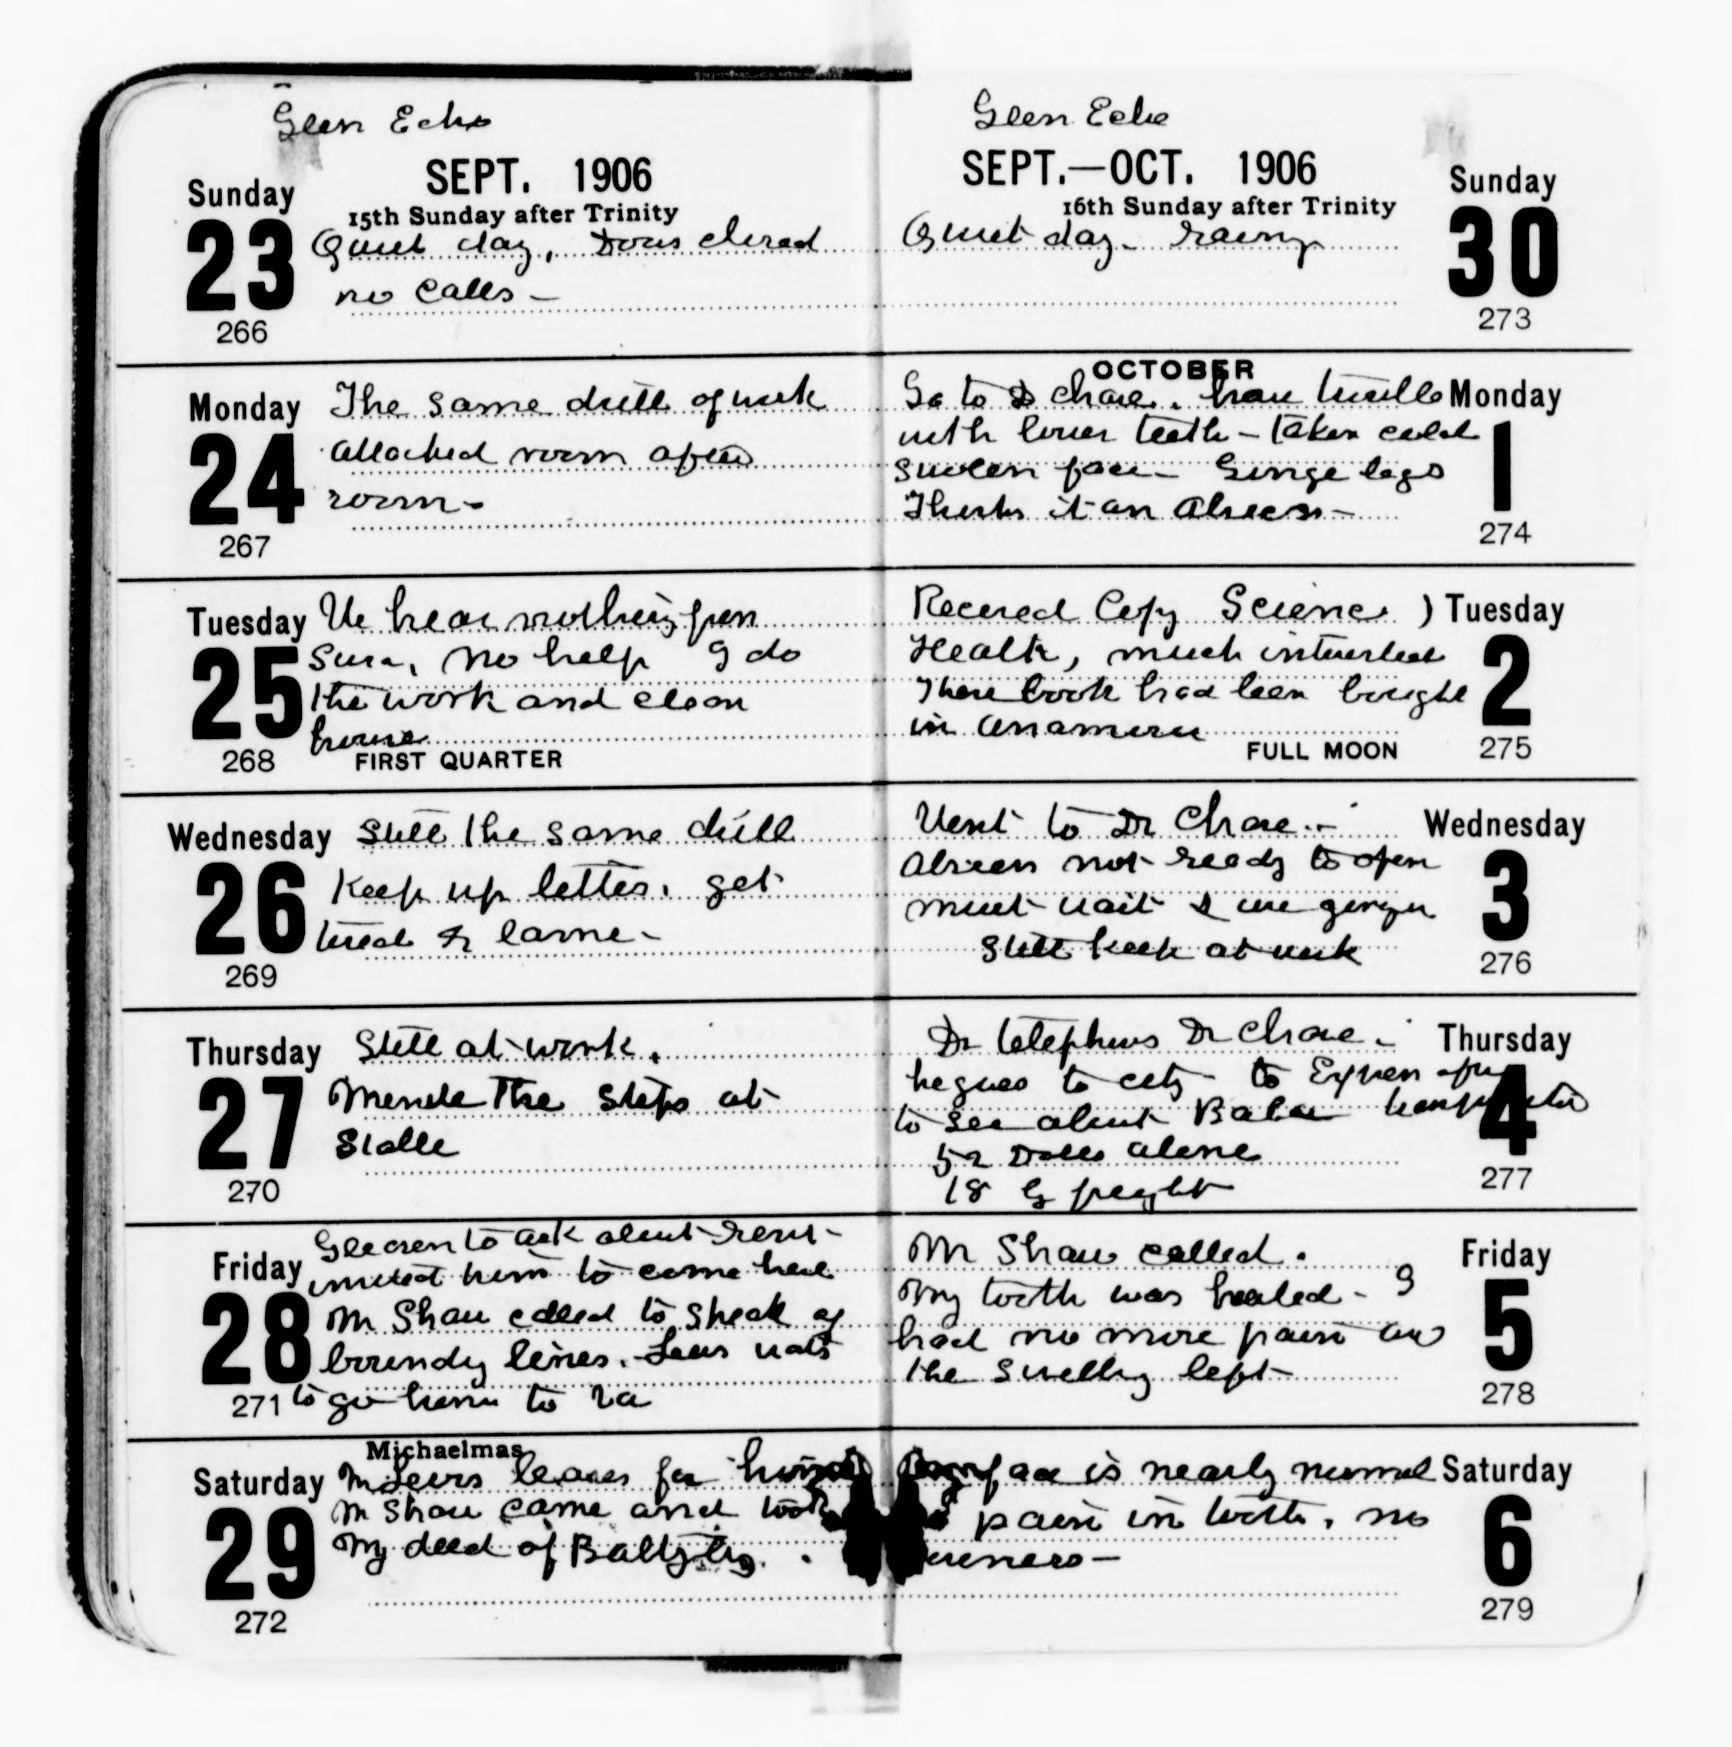 Glen Echo
SEPT. 1906
Sunday
23
266
15th Sunday after Trinity
Quiet day, Doors closed
no calls -
Monday
24
267
The same drill of work
attacked room after
room -
Tuesday
25
268
We hear nothing from
Sura, no help I do
the work and clean
house
FIRST QUARTER
Wednesday
26
269
Still the same drill
Keep up letters. get
tired & lame -
Thursday
27
270
Still at work.
Mende the steps at
Stable
Friday
28
271
to ask about rent -
invited him to come here
Mr Shaw called to speak of
boundy lines. Lewis wats
to go home to Va
Saturday
29
272
Michaelmas
Mr Lewis leaves for home
Mr Shaw came and took
My deed of Baltzley.
Glen Echo
SEPT.—OCT. 1906
16th Sunday after Trinity
Sunday
30
273
Quiet day - rainy
OCTOBER
Monday
1
274
Go to Dr Chase. have trouble
with lower teeth - taken cold
swolen face -
Thinks it an Abscess -
Tuesday
2
275
Received Copy Science )
Health, much interested
These book had been bought
in
FULL MOON
Wednesday
3
276
Went to Dr Chase. -
Absces not ready to open
must wait I use ginger
Still keep at work
Thursday
4
277
Dr telephons Dr Chase. -
he goes to city - to Expen
to see about
52 Dolls alone
18 G freght
Friday
5
278
Mr Shaw called.
My tooth was healed - I
had no more pain and
the swelling left
Saturday
6
279
face is nearly normal
pain in tooth. no